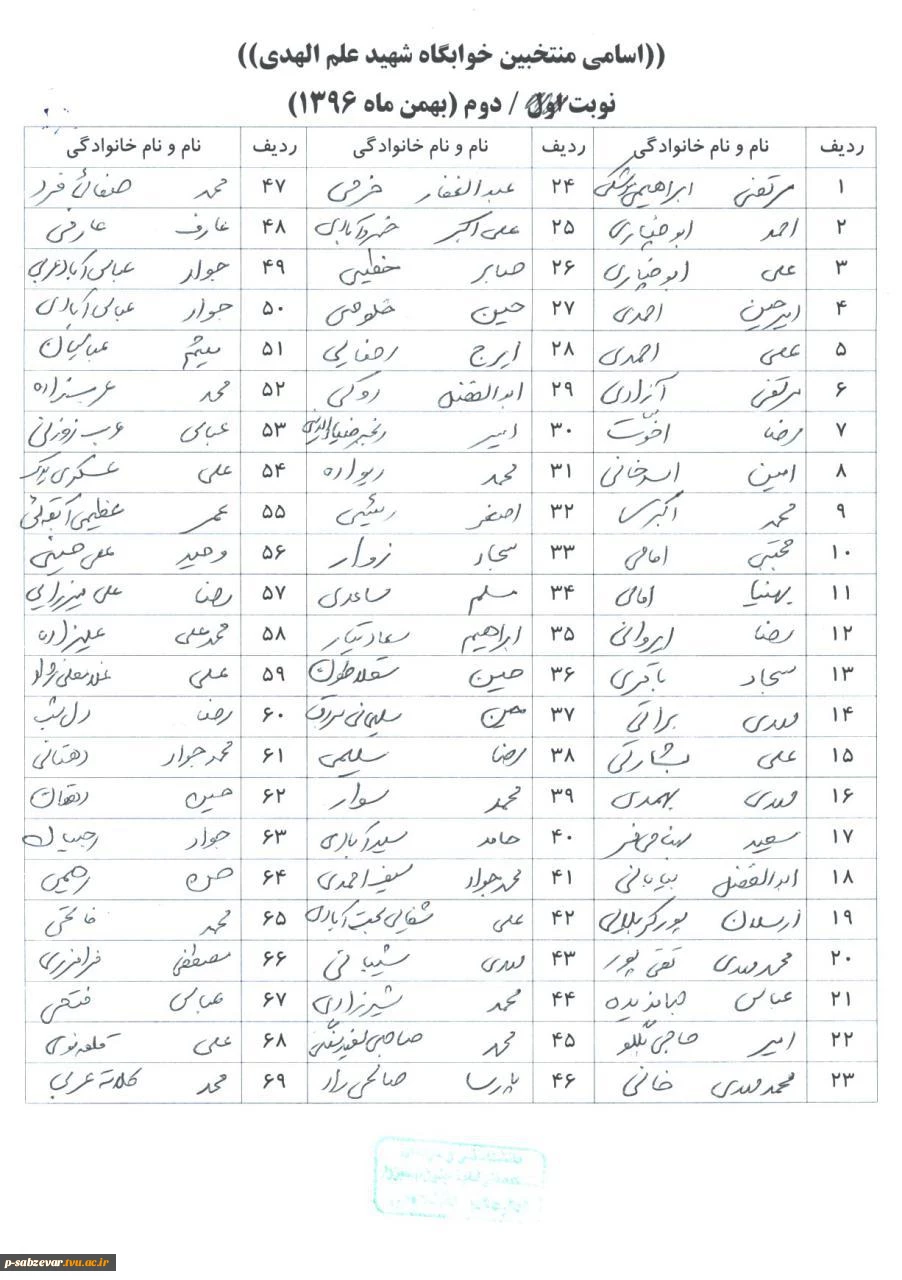 ((اسامی منتخبین خوابگاه شهید علم الهدی))
نوبت اول / دوم (بهمن ماه ۱۳۹۶)
ردیف نام و نام خانوادگی ردیف نام و نام خانوادگی ردیف نام و نام خانوادگی
۱ مرتضی ۲۴ عبدالغفار خرمی ۴۷ محمد صنعائی فرد
۲ احمد ۲۵ علی اکبر خیرآبادی ۴۸ عارف عارفی
۳ علی ۲۶ صابر خطیبی ۴۹ جواد عباس آباد عربی
۴ امیرحسین احمدی ۲۷ حسین خلوصی ۵۰ جواد عباس آبادی
۵ علی احمدی ۲۸ ایرج رضایی ۵۱ میثم عباسیان
۶ مرتضی آزادی ۲۹ ابوالفضل روکی ۵۲ محمد عربزاده
۷ رضا اخوت ۳۰ امیر ۵۳ عباس عرب زوزنی
۸ امین اسدخانی ۳۱ محمد ریواده ۵۴ علی عسکری
۹ محمد ۳۲ اصغر رئیسی ۵۵ عمر عظیمی
۱۰ مجتبی امامی ۳۳ سجاد زوار ۵۶ وحید علی حسینی
۱۱ یهنیا امامی ۳۴ مسلم ساعدی ۵۷ رضا علی میرزایی
۱۲ رضا ایروانی ۳۵ ابراهیم سعادتیار ۵۸ محمدعلی علیزاده
۱۳ سجاد باقری ۳۶ حسین ۵۹ علی
۱۴ مهدی براتی ۳۷ حسن سلیمانی ۶۰ رضا
۱۵ علی بشارتی ۳۸ رضا سلیمی ۶۱ محمدجواد دهقانی
۱۶ مهدی بهمدی ۳۹ محمد سوار ۶۲ حسین دهقان
۱۷ سعید ۴۰ حامد سیدآبادی ۶۳ جواد رجبیان
۱۸ ابوالفضل بیابانی ۴۱ محمدجواد سیف احمدی ۶۴ رحیمی
۱۹ ارسلان پورکربلایی ۴۲ علی ۶۵ محمد فاتحی
۲۰ محمدمهدی تقی پور ۴۳ مهدی شیبانی ۶۶ مصطفی فرامرزی
۲۱ عباس جهاندیده ۴۴ محمد شیرزادی ۶۷ عباس فتحی
۲۲ امیر حاجی بگلو ۴۵ محمد ۶۸ علی قلعه نوی
۲۳ محمدمهدی خانی ۴۶ پارسا صالحی راد ۶۹ محمد کلاته عربی
p-sabzevar.tvu.ac.ir